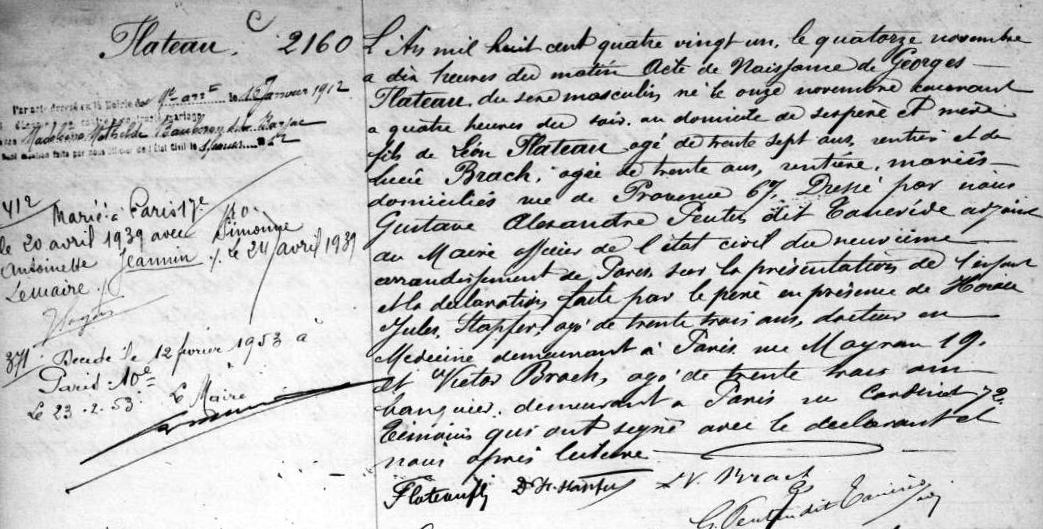 Flateau. 2160
Par acte dressé en la Mairie du 9e arrt le 16 Janvier 1912
Madeleine Mathilde
412
Marié à Paris 17e
le 20 avril 1939 avec Simonne
Antoinette Jeannin /. le 24 avril 1939
Lemaire.
371. Décédé le 12 février 1953 à
Paris 10e
Le 23.2.53. Le Maire
L'An mil huit cent quatre vingt un, le quatorze novembre
a dix heures du matin Acte de Naissance de Georges
Flateau, du sexe masculin, né le onze novembre courant
a quatre heures du soir, au domicile de ses père et mère
fils de Léon Flateau, agé de trente sept ans, rentier et de
Lucie Brach, agée de trente ans, rentière, mariés
domiciliés rue de Provence 67. Dressé par nous
Gustave Alexandre dit Tancrède adjoint
au Maire officier de l'état civil du neuvième
arrondissement de Paris sur la présentation de l'enfant
et la déclaration faite par le père en présence de Horace
Jules, Stapfer, agé de trente trois ans, docteur en
Médecine demeurant à Paris rue Mayran 19.
et Victor Brach, agé de trente trois ans
banquier, demeurant a Paris rue Cardinet 72.
Témoins qui ont signé avec le déclarant et
nous après lecture
Flateau D H. Stapfer V. Brach